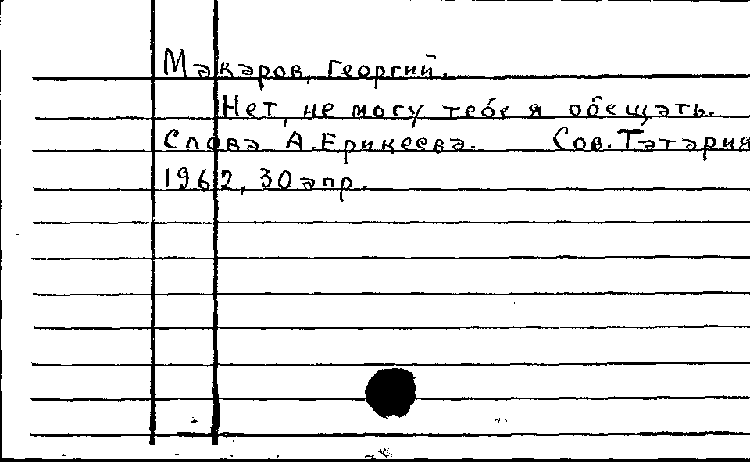 Макаров, Георгий.
Нет, не могу тебе я обещать.
Слова А.Ерикеева. Сов.Татария
1962, 30 апр.